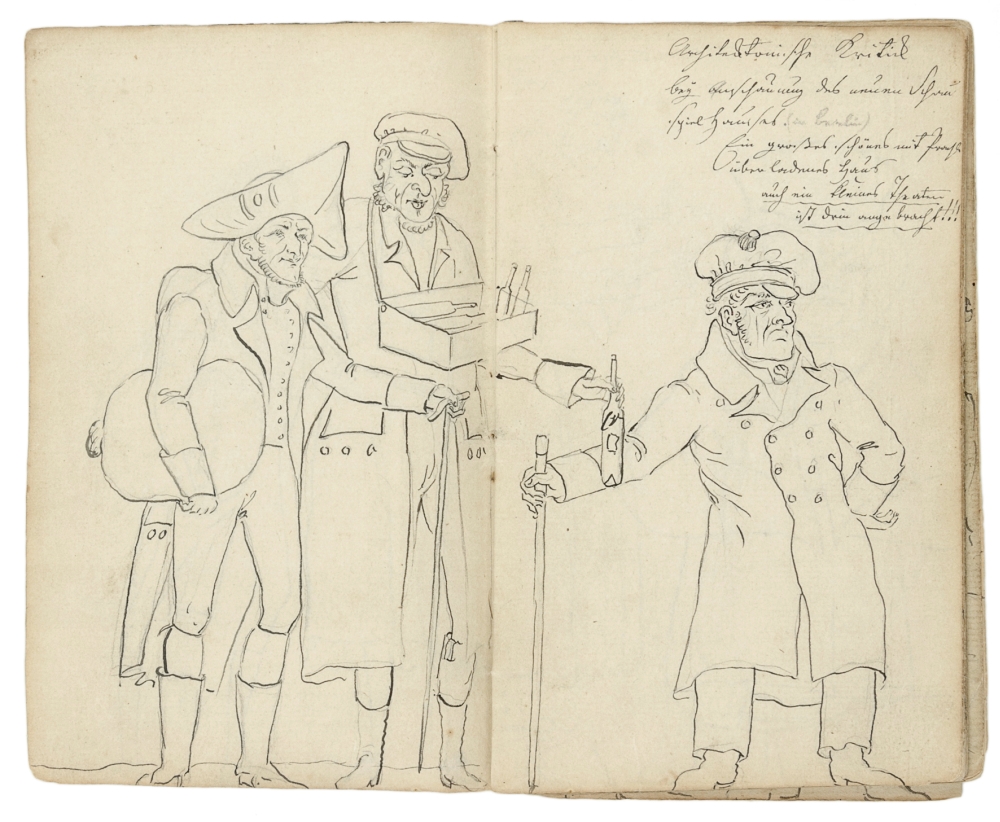 Architektonische Kritik
bey Anschauung des neuen Schau
spiel Hauses. (in Berlin)
Ein großes schönes mit Pracht
überladenes Haus
auch ein kleines Theater
ist drin angebracht!!!